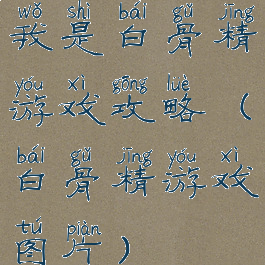 wǒ shì bái gǔ jīng
我是白骨精
yóu xì gōng lüè
游戏攻略（
bái gǔ jīng yóu xì
白骨精游戏
tú piàn
图片）